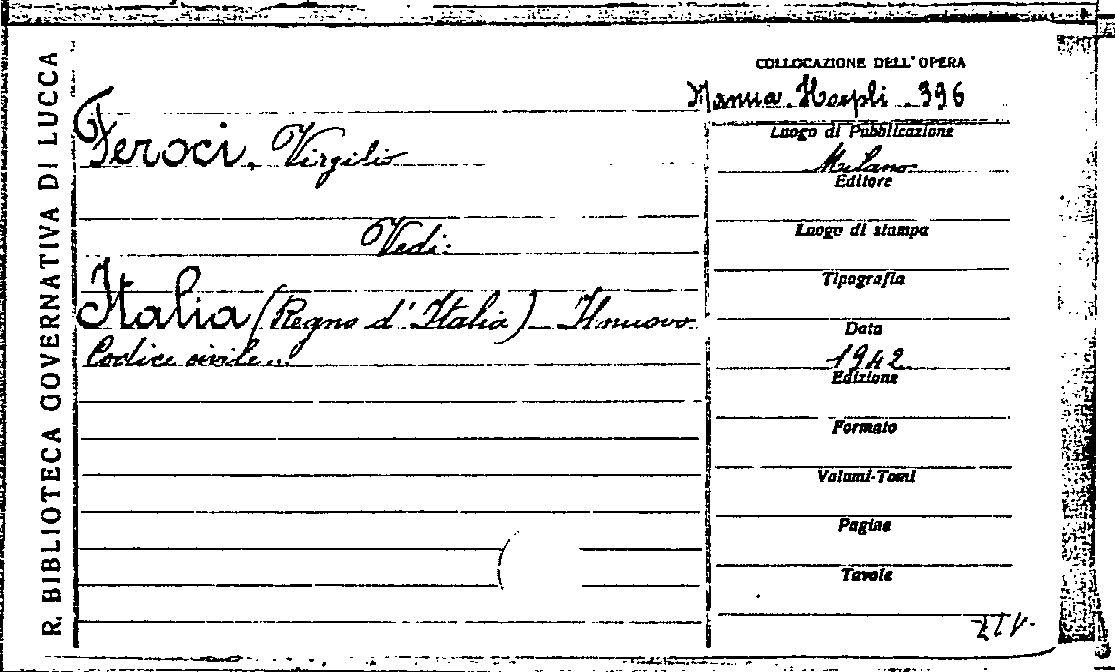 R. BIBLIOTECA GOVERNATIVA DI LUCCA
Feroci, Virgilio
Vedi:
Italia (Regno d'Italia) - Il nuovo
Codice civile...
COLLOCAZIONE DELL'OPERA
Manua. Hoepli 396
Luogo di Pubblicazione
Milano
Editore
Luogo di stampa
Tipografia
Data
1942
Edizione
Formato
Volumi-Tomi
Pagine
Tavole